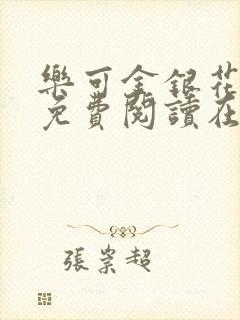 樂可金銀花
免費閱讀在
張業超